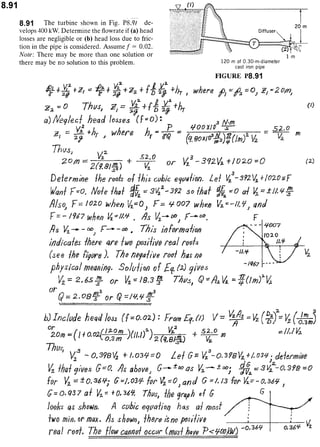 8.91
8.91 The turbine shown in Fig. P8.91 de-
velops 400 kW. Determine the flowrate if (a) head
losses are negligible or (b) head loss due to fric-
tion in the pipe is considered. Assume f = 0.02.
Note: There may be more than one solution or
there may be no solution to this problem.
(1)
20 m
Diffuser
T
(2)
1 m
120 m of 0.30-m-diameter
cast iron pipe
FIGURE P8.91
p₁/γ + V₁²/2g + z₁ = p₂/γ + V₂²/2g + z₂ + f ℓ/D V²/2g + h_T , where p₁ = p₂ = 0, z₁ = 20m,
z₂ = 0 Thus, z₁ = V₂²/2g + f ℓ/D V²/2g + h_T (1)
a) Neglect head losses (f=0):
z₁ = V₂²/2g + h_T , where h_T = P/γQ = 400x10³ N·m/s / (9.80x10³ N/m³) π/4 (1m)² V₂ = 52.0/V₂ m
Thus,
20m = V₂²/2(9.81 m/s²) + 52.0/V₂ or V₂³ - 392V₂ + 1020 = 0 (2)
Determine the roots of this cubic equation. Let V₂³ - 392V₂ + 1020 = F
Want F=0. Note that dF/dV₂ = 3V₂² - 392 so that dF/dV₂ = 0 at V₂ = ± 11.4 m/s
Also, F = 1020 when V₂=0, F = 4007 when V₂ = -11.4, and
F = -1967 when V₂ = 11.4. As V₂→∞, F→∞.
As V₂→ -∞, F→ -∞. This information
indicates there are two positive real roots
(see the figure). The negative root has no
physical meaning. Solution of Eq. (2) gives
V₂ = 2.65 m/s or V₂ = 18.3 m/s Thus, Q = A₂V₂ = π/4 (1m)² V₂
or
Q = 2.08 m³/s or Q = 14.4 m³/s
F
4007
1020
11.4
-11.4
V₂
-1967
b) Include head loss (f=0.02): From Eq. (1) V = V₂A₂/A = V₂ (D₂/D)² = V₂ (1m/0.3m)²
= 11.1V₂
or
20m = (1 + 0.02 (120m/0.3m)(11.1)²) V₂²/2(9.81 m/s²) + 52.0/V₂ m
Thus,
V₂³ - 0.398V₂ + 1.034 = 0 Let G = V₂³ - 0.398V₂ + 1.034; determine
V₂ that gives G=0. As above, G→ ±∞ as V₂→ ±∞; dG/dV₂ = 3V₂² - 0.398 = 0
for V₂ = ±0.364; G = 1.034 for V₂=0, and G = 1.13 for V₂ = -0.364,
G = 0.937 at V₂ = +0.364. Thus, the graph of G
looks as shown. A cubic equation has at most
two min. or max. As shown, there is no positive
real root. The flow cannot occur (must have P<400 kW)
G
-0.364
0.364
V₂